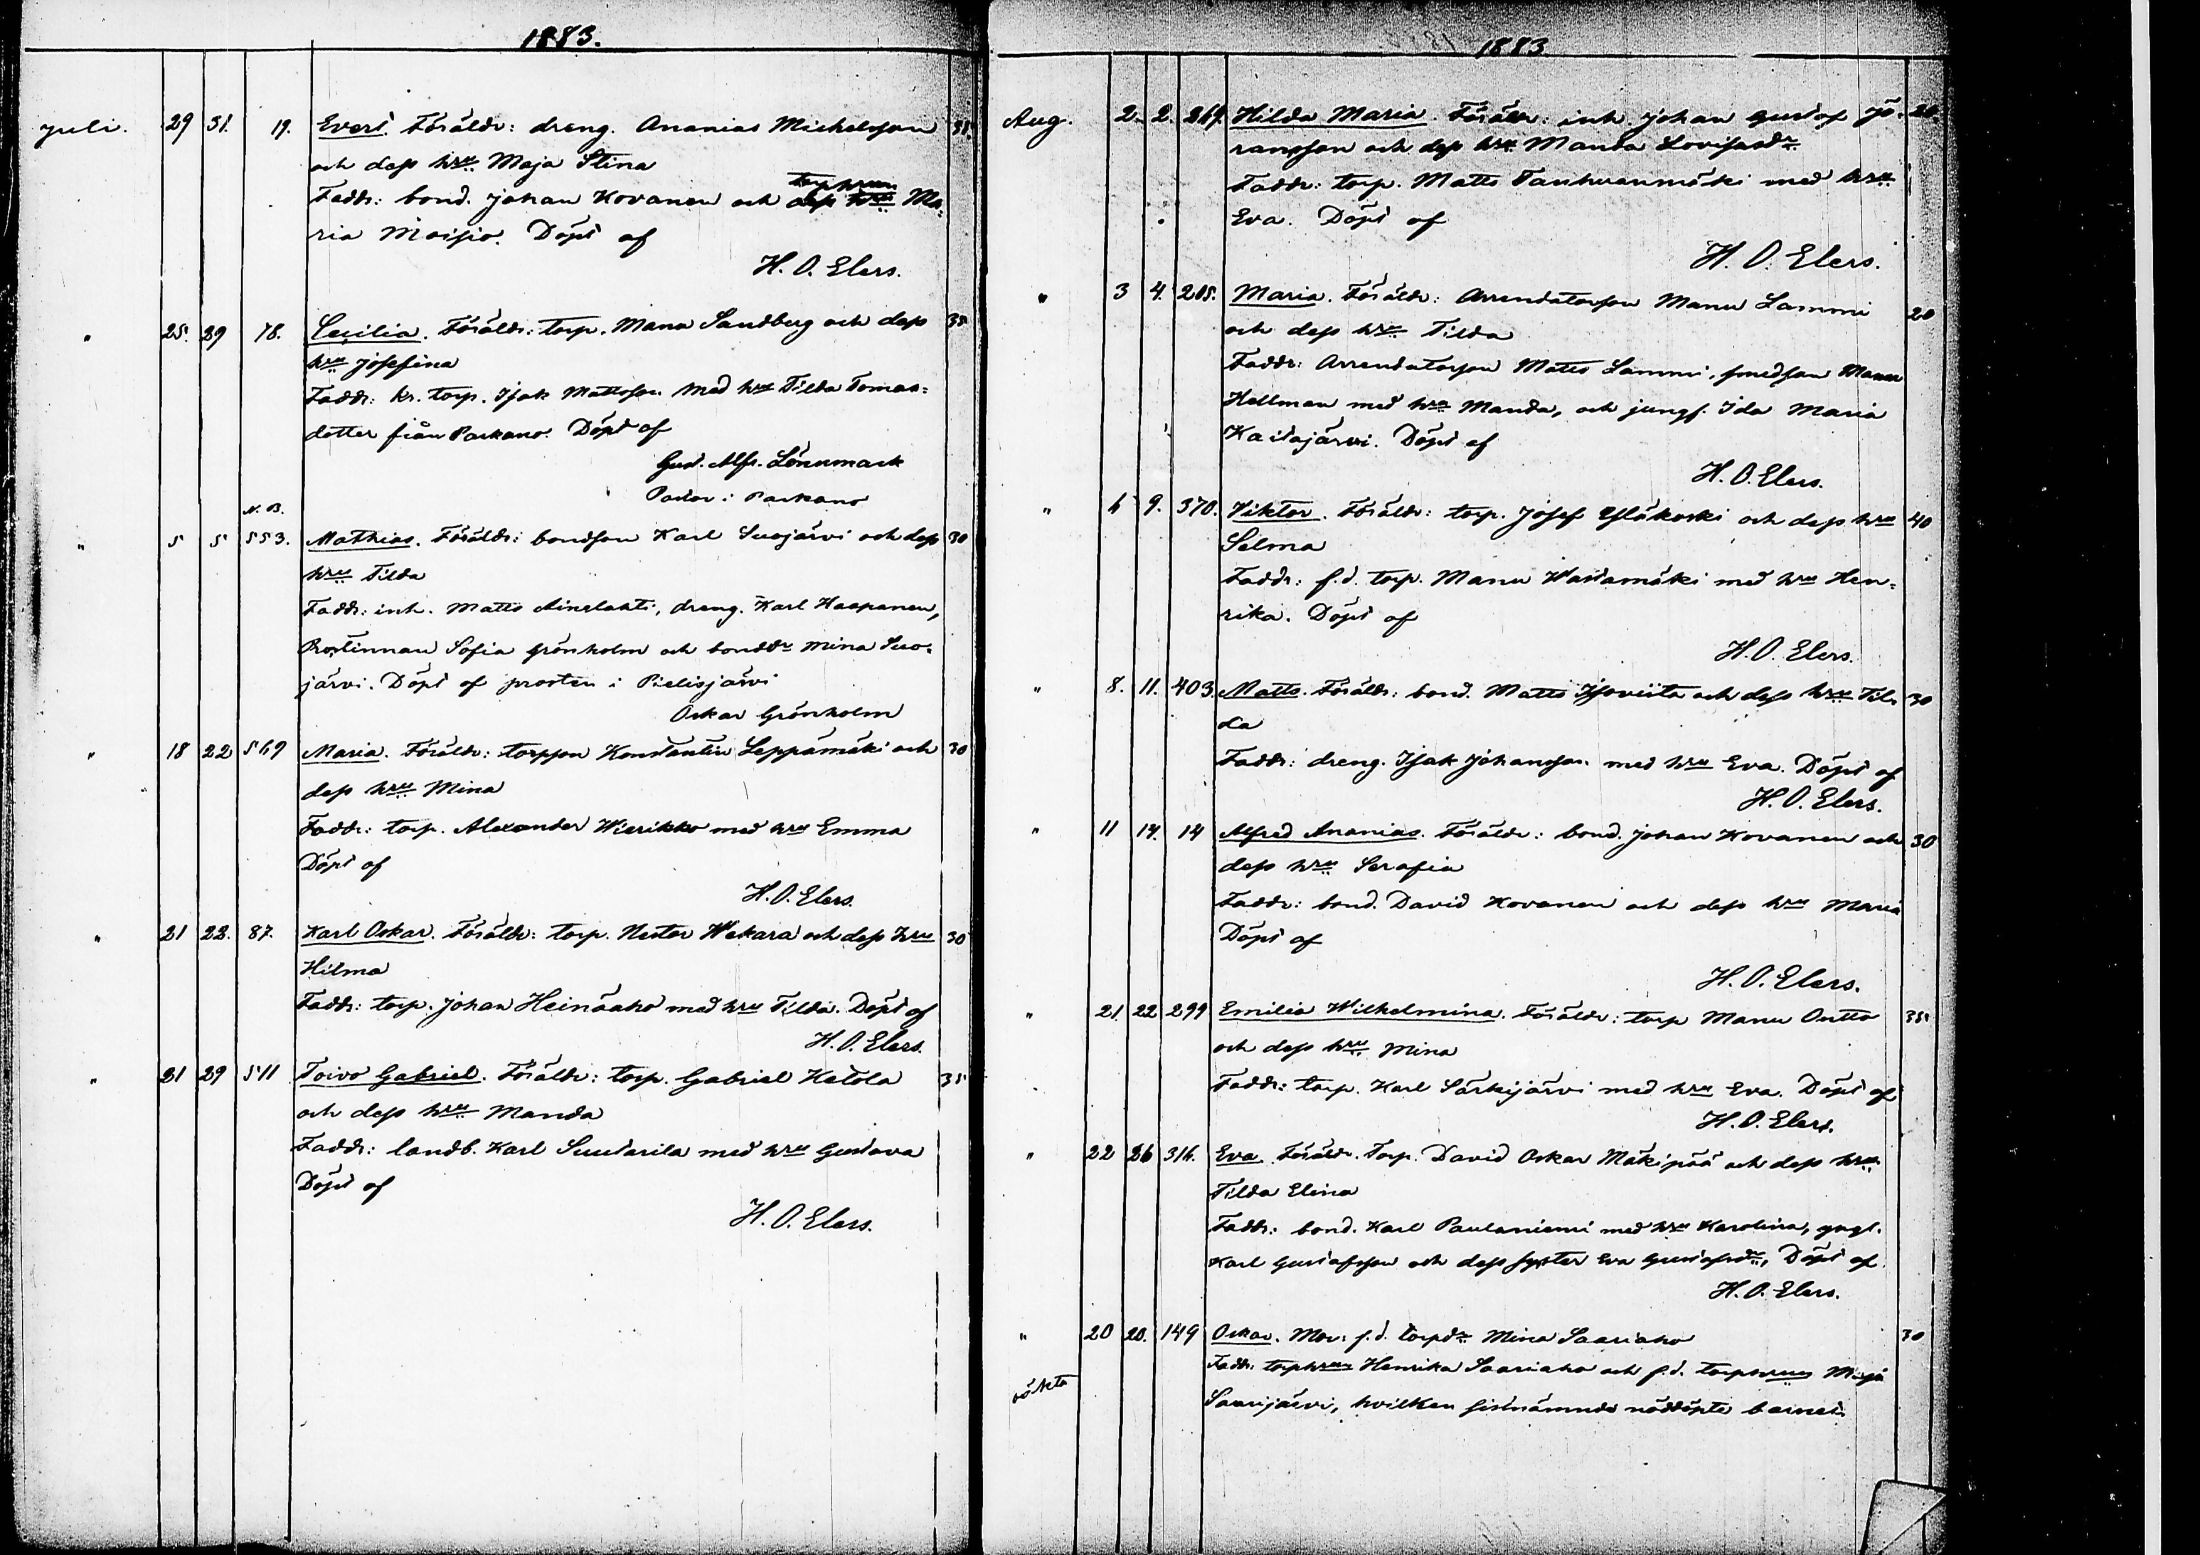 1883.
Juli. 29 31. 19. Evert. Föräldr: dreng. Ananias Michelsson 35.
och dess hru Maja Stina
Faddr: bond. Johan Kovanen och torphrun Ma-
ria Moisio. Döpt af
H. O. Elers.
" 25. 29 78. Cecilia. Föräldr: torp. Manu Sandberg och dess 35
hru Josefina
Faddr: kr. torp. Isak Mattsson med hru Tilda Tomas-
dotter från Parkano. Döpt af
Gust. Alfr. Lönnmark
Pastor i Parkano
N. B.
" 5 5 553. Mathias. Föräldr: bondson Karl Suojärvi och dess 30
hru Tilda
Faddr: inh. Matts Ainelahti, dreng. Karl Haapanen,
Prostinnan Sofia Grönholm och bonddr Mina Suo-
järvi. Döpt af prosten i Pielisjärvi
Oskar Grönholm
" 18 22 569 Maria. Föräldr: torpson Konstantin Leppämäki och 30
dess hru Mina
Faddr: torp. Alexander Wierikko med hru Emma
Döpt af
H. O. Elers.
" 21 22. 87. Karl Oskar. Föräldr: torp. Nestor Wakara och dess hru 30
Hilma
Faddr: torp. Johan Heinäaho med hru Tilda. Döpt af
H. O. Elers.
" 21 29 511 Toivo Gabriel. Föräldr: torp. Gabriel Ketola 35
och dess hru Manda
Faddr: landb. Karl Suutarila med hru Gustava
Döpt af
H. O. Elers.
1883
Aug. 2. 2. 269. Hilda Maria. Föräldr: inh. Johan Gustaf Jö- 20
ransson och dess hru Manda Lovisasdr
Faddr: torp. Matts Tanhuanmäki med hru
Eva. Döpt af
H. O. Elers.
" 3 4. 205. Maria. Föräldr: Arrendatorson Manu Lammi 20
och dess hru Tilda
Faddr: Arrendatorson Matts Lammi, smedson Manu
Hellman med hru Manda, och jungf. Ida Maria
Kaitajärvi. Döpt af
H. O. Elers.
" 6 9. 370. Viktor. Föräldr: torp. Josef Yläkoski och dess hru 40
Selma
Faddr: f.d. torp. Manu Wastamäki med hru Hen-
rika. Döpt af
H. O. Elers.
" 8. 11. 403. Matts. Föräldr: bond. Matts Isoviita och dess hru Til- 30
da
Faddr: dreng. Isak Johansson med hru Eva. Döpt af
H. O. Elers.
" 11 14. 14 Alfred Ananias. Föräldr: bond. Johan Kovanen och 30
dess hru Serafia
Faddr: bond. David Kovanen och dess hru Maria
Döpt af
H. O. Elers.
" 21 22 299 Emilia Wilhelmina. Föräldr: torp Manu Ontto 35
och dess hru Mina
Faddr: torp. Karl Särkijärvi med hru Eva. Döpt af
H. O. Elers.
" 22 26 316. Eva. Föräldr. Torp. David Oskar Mäkipää och dess hru
Tilda Elina
Faddr: bond. Karl Paulaniemi med hru Karolina, yngl.
Karl Gustafsson och dess syster Eva Gustafsdr, Döpt af
H. O. Elers.
" 20 20. 149 Oskar. Mor: f.d. torpdr Mina Saariaho 30
oäkta Faddr: torphrun Henrika Saariaho och f.d. torphrun Maja
Saarijärvi, hvilken sistnämnde nöddöpte barnet.